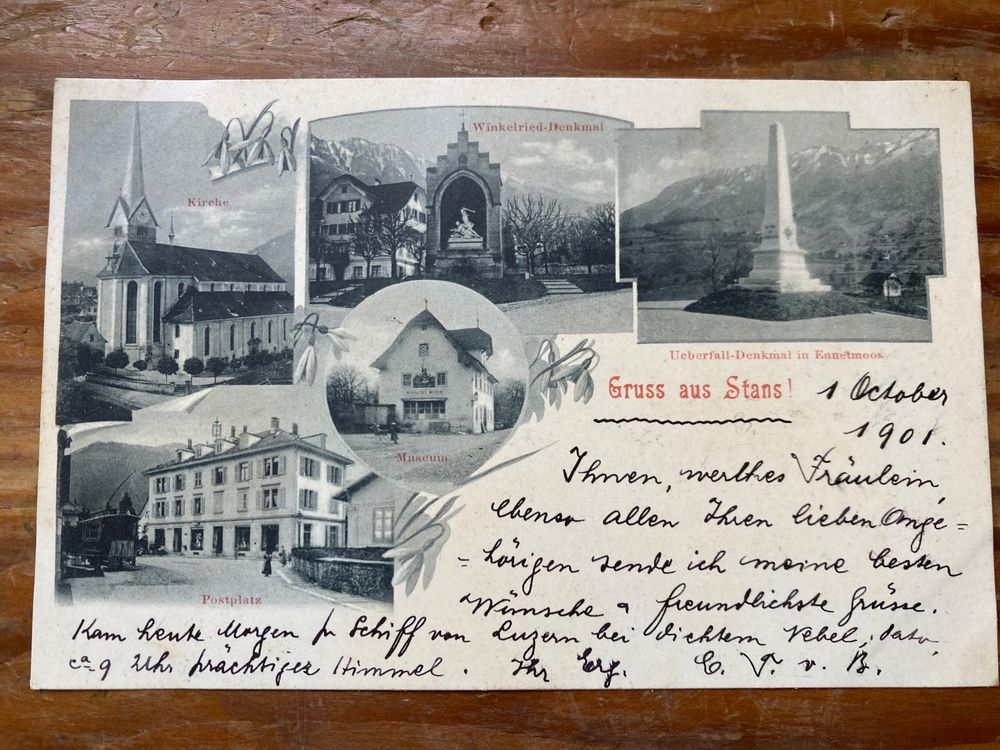 Kirche
Winkelried-Denkmal
Ueberfall-Denkmal in Ennetmoos
Museum
Postplatz
Gruss aus Stans!
1 October
1901.
Ihnen, werthes Fräulein,
ebenso allen Ihren lieben Ange=
=hörigen sende ich meine besten
Wünsche & freundlichste Grüsse.
Kam heute Morgen pr Schiff von Luzern bei dichtem Nebel, dato
ca 9 Uhr prächtiger Himmel. Ihr Erg. C. T. v. B.